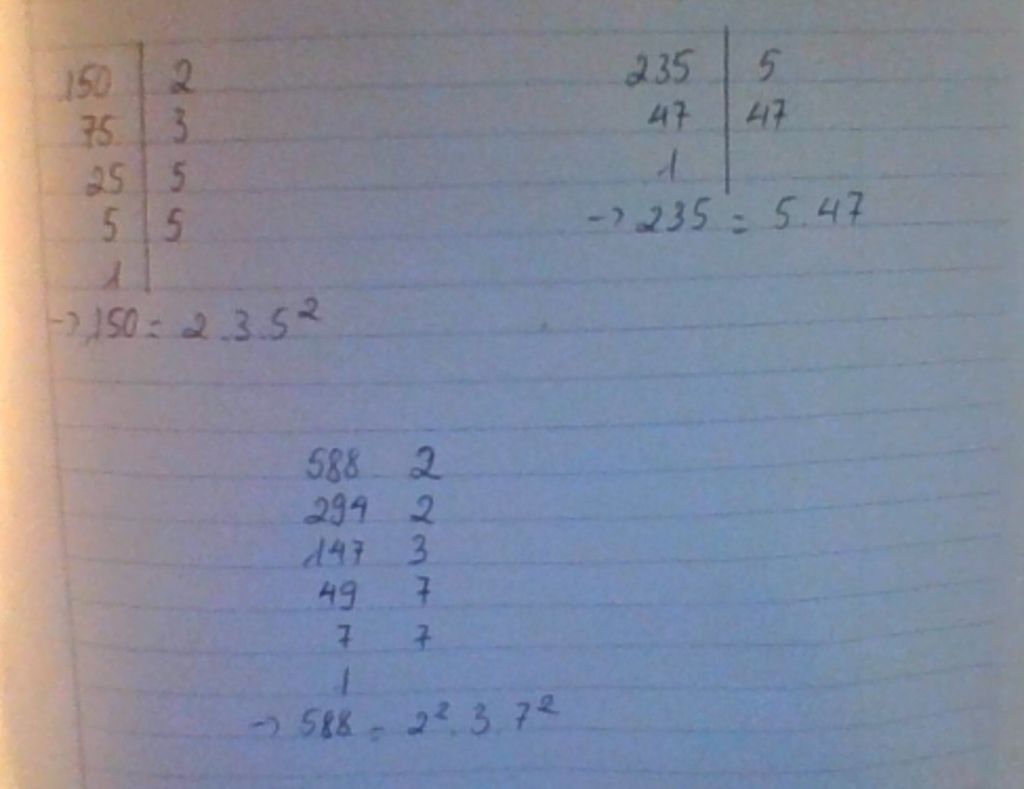 150 | 2
75 | 3
25 | 5
5 | 5
1 |
→ 150 = 2.3.5²
235 | 5
47 | 47
1 |
→ 235 = 5.47
588 2
294 2
147 3
49 7
7 7
1
→ 588 = 2².3.7²